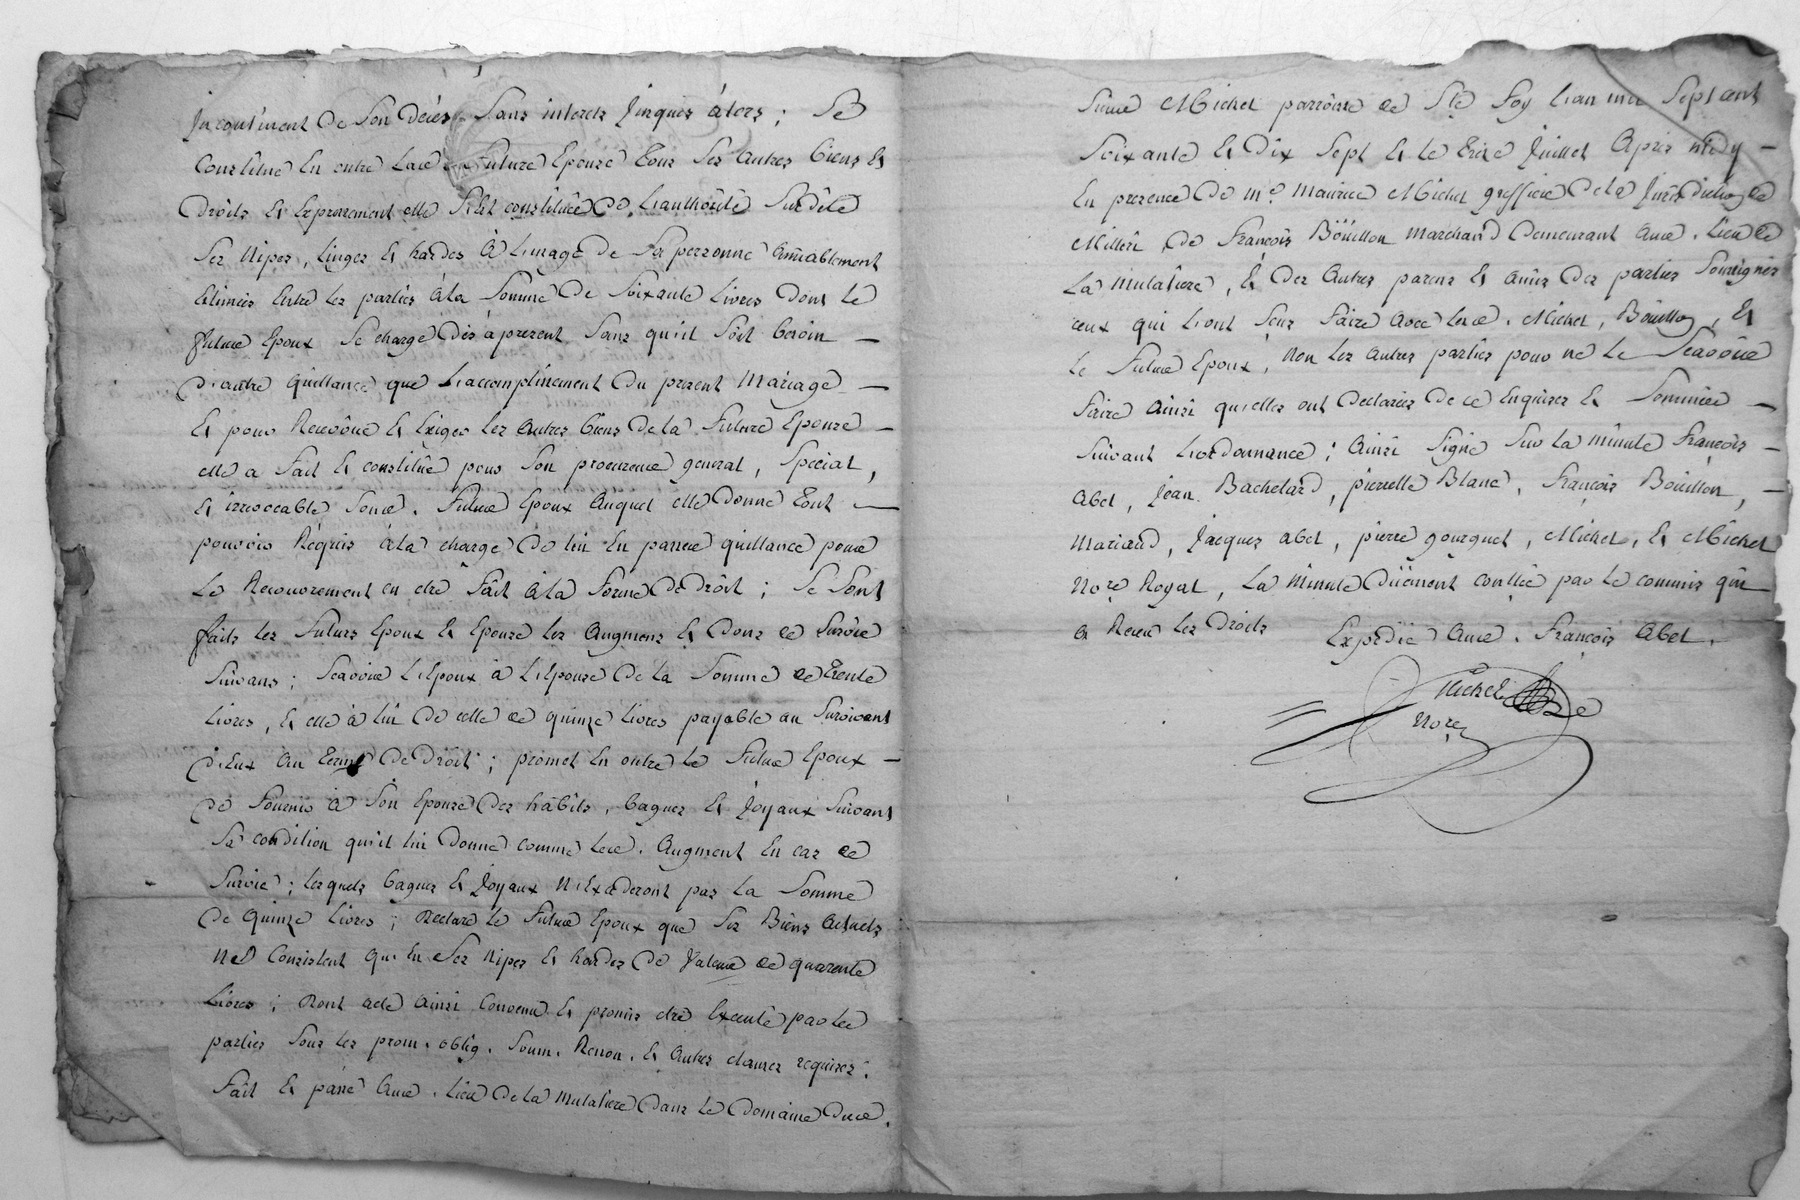 Incontinent de Son deces Sans interets Jusques àlors ; Se
Constitue En outre lad. future Epouze Tous Ses Autres biens &
Droits Et Expressement elle S'est constituée De L'authorité Susdite
Ses Nipes, linges Et hardes à L'usage de Sa personne amiablement
Estimés Entre les parties àla Somme De Soixante Livres Dont le
futur Epoux Se charge Dès àpresent Sans qu'il Soit besoin —
D'autre Quittance que L'accomplissement Du present Mariage —
Et pour Recevoir Et Exiger les autres biens De la future Epouse —
elle a fait Et constitué pour Son procureur general, Special,
Et irrevocable Sond. futur Epoux Auquel elle Donne Tout —
pouvoir Requis àla charge De lui En passer quittance pour
Le Recouvrement en etre fait àla forme De droit ; Se Sont
faits les futurs Epoux Et Epouze les augmens Et Dons de Survie
Suivans ; Scavoir L'Epoux à L'Epouze De la Somme de Trente
Livres, Et elle à lui De celle de quinze livres payable au Survivant
D'Eux au Terme De Droit ; promet En outre Le futur Epoux —
De fournir à Son Epouze Des habits, bagues Et Joyaux Suivant
Sa condition qu'il lui Donne comme led. Augment En cas de
Survie ; lesquels bagues Et Joyaux N'Exederont pas La Somme
De Quinze Livres ; Declare Le futur Epoux que Ses Biens actuels
Ne Consistent qu'En Ses Nipes Et hardes De Valeur de quarente
Livres ; Dont acte ainsi Convenu Et promis etre Executé par les
parties Sous les prom. oblig. Soum. Renon. & autres clauses requises.
Fait Et passé Aud. Lieu De la Mulatiere Dans Le Domaine Dud.
Sieur Michel parroisse de Ste Foy L'an mil Sept cent
Soixante Et Dix Sept Et le Treize Juillet Après Midy —
En presence De Me. Maurice Michel greffier De la Jurisdiction de
Millery, De François Boüillon Marchand Demeurant aud. Lieu de
La Mulatiere, Et Des Autres parens Et amis Des parties Soussignés
ceux qui L'ont Sceu faire avec lesd. Michel, Boüillon, Et
Le Futur Epoux, Non les autres parties pour ne le Scavoir
faire ainsi qu'elles ont Declarées De ce Enquises Et Sommées —
Suivant L'ordonnance ; Ainsi Signé Sur la minute François —
Abel, Jean Bachelard, pierrette Blanc, François Boüillon, —
Mariand, Jacques abel, pierre gourguet, Michel, Et Michel
Nore Royal, La Minute Düement contllée par le commis qui
a Receu les Droits Expedié Aud. François Abel.
Michel
Nore